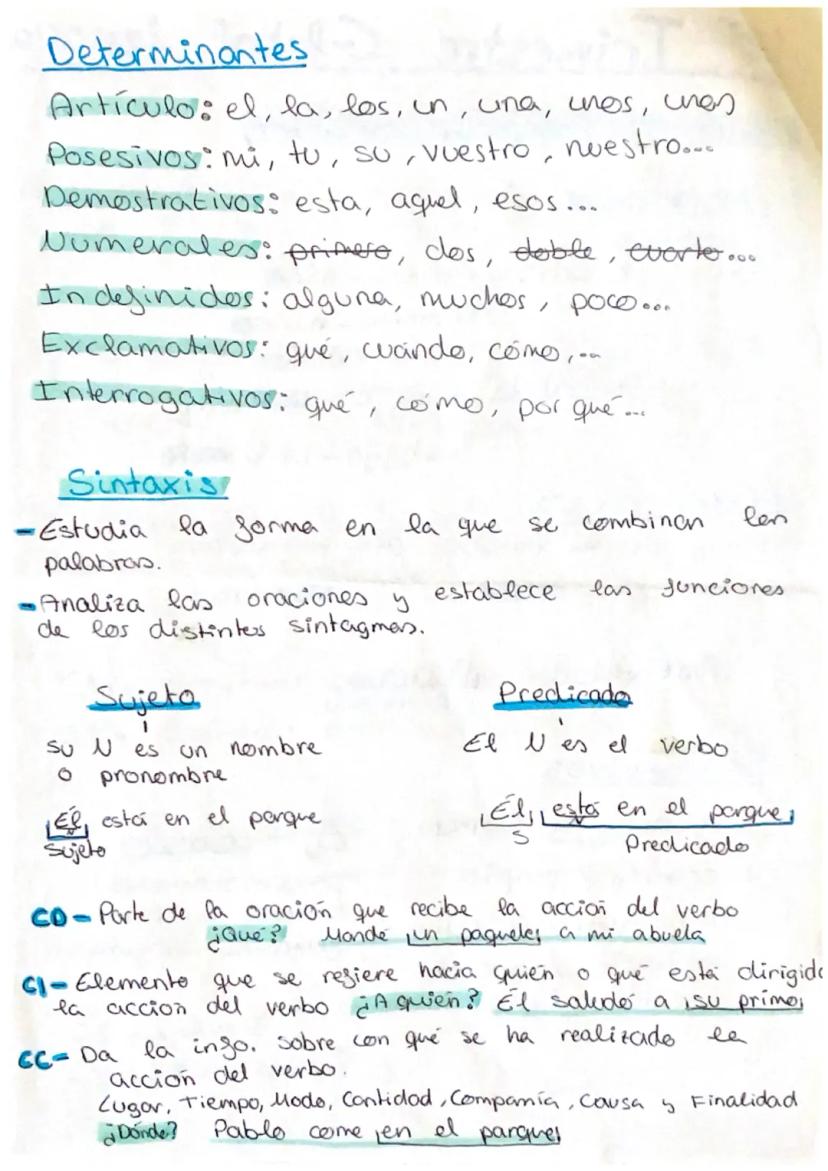 Determinantes
Artículo: el, la, los, un, una, unos, unas
Posesivos: mi, tu, su, vuestro, nuestro...
Demostrativos: esta, aquel, esos...
Numerales: primero, dos, doble, cuarto...
Indefinidos: alguna, muchos, poco...
Exclamativos: qué, cuándo, cómo,...
Interrogativos: qué, cómo, por qué...
Sintaxis
- Estudia la forma en la que se combinan las
palabras.
- Analiza las oraciones y establece las funciones
de los distintos sintagmas.
Sujeto
su N es un nombre
o pronombre
Él está en el parque
Sujeto
Predicado
El N es el verbo
Él está en el parque
S Predicado
CD - Parte de la oración que recibe la acción del verbo
¿Qué? Mandé un paquetes a mi abuela
CI - Elemento que se refiere hacia quien o qué está dirigida
la acción del verbo ¿A quién? Él saludó a su primo
CC - Da la info. sobre con qué se ha realizado la
acción del verbo.
Lugar, Tiempo, Modo, Cantidad, Compamía, Causa y Finalidad
¿Dónde? Pablo come en el parque